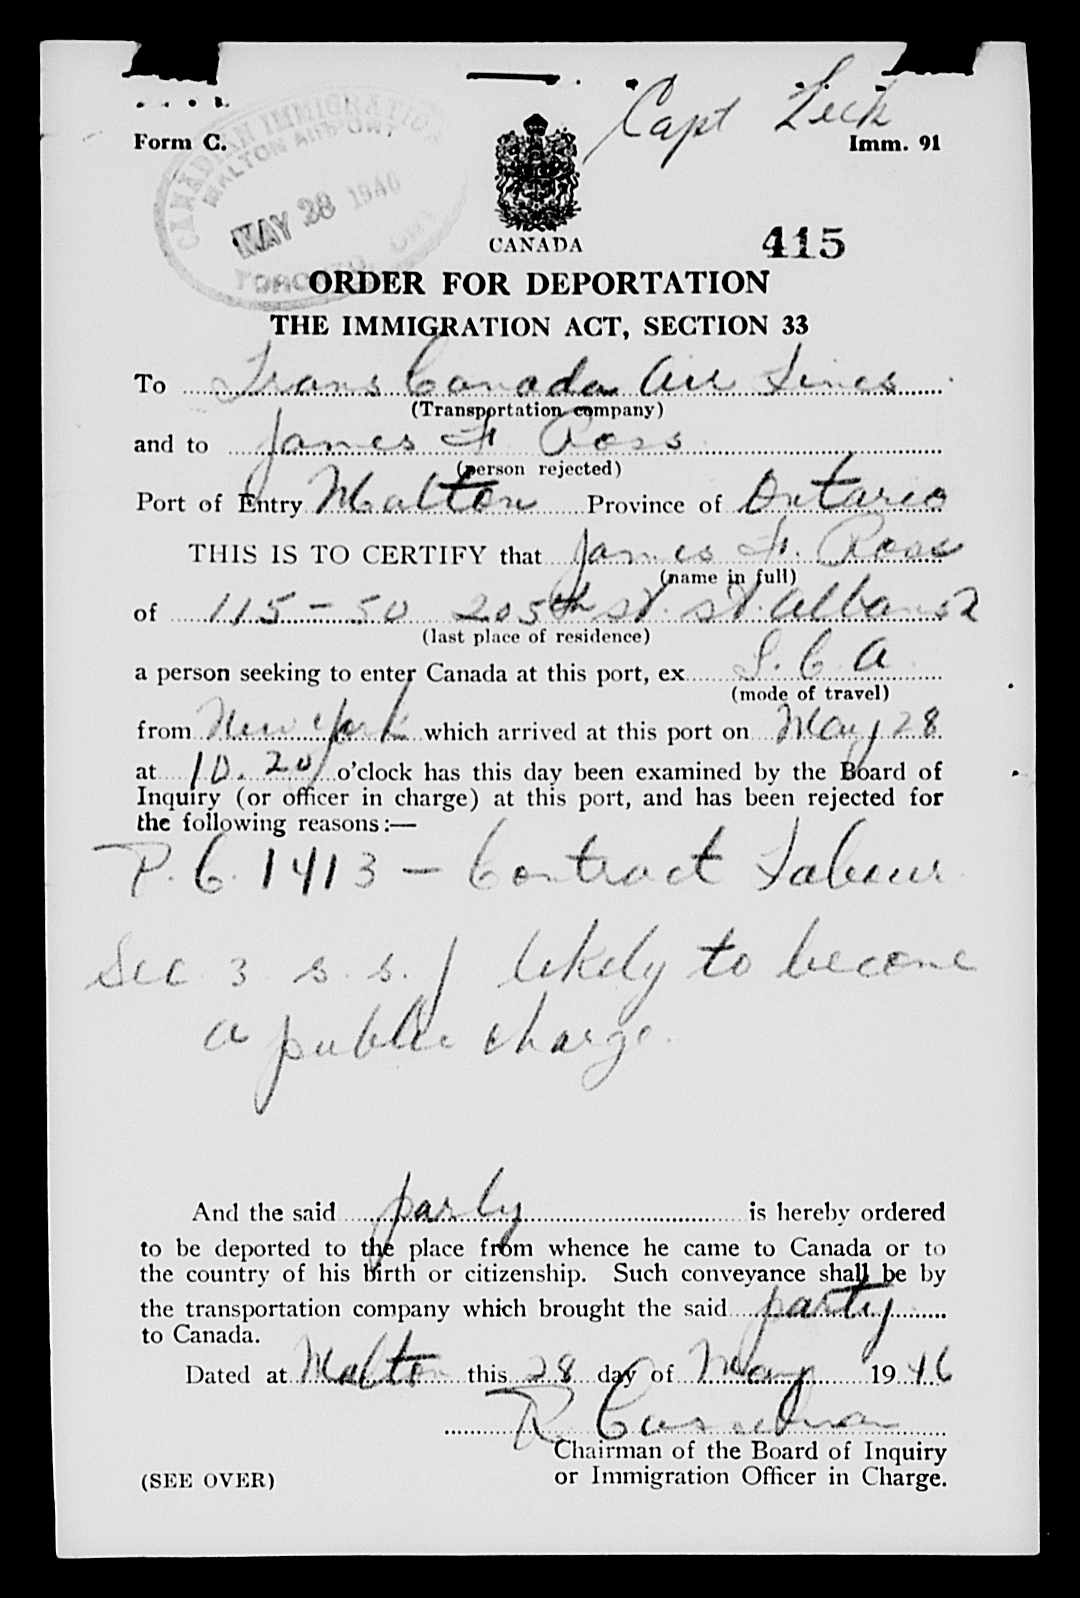 Capt Leck
Form C.
Imm. 91
CANADIAN IMMIGRATION
MALTON AIRPORT
MAY 28 1946
TORONTO, ONT.
CANADA
415
ORDER FOR DEPORTATION
THE IMMIGRATION ACT, SECTION 33
To Trans Canada Air Lines
(Transportation company)
and to James F. Ross
(person rejected)
Port of Entry Malton Province of Ontario
THIS IS TO CERTIFY that James F. Ross
(name in full)
of 115-50 205th st. st. Albans 2
(last place of residence)
a person seeking to enter Canada at this port, ex T. C. A
(mode of travel)
from New York which arrived at this port on May 28
at 10.20 o'clock has this day been examined by the Board of
Inquiry (or officer in charge) at this port, and has been rejected for
the following reasons:—
P. C. 1413 - Contract Labour
Sec 3 s. s. j likely to become
a public charge.
And the said party is hereby ordered
to be deported to the place from whence he came to Canada or to
the country of his birth or citizenship. Such conveyance shall be by
the transportation company which brought the said party
to Canada.
Dated at Malton this 28 day of May 1946
R. Casselman
Chairman of the Board of Inquiry
or Immigration Officer in Charge.
(SEE OVER)